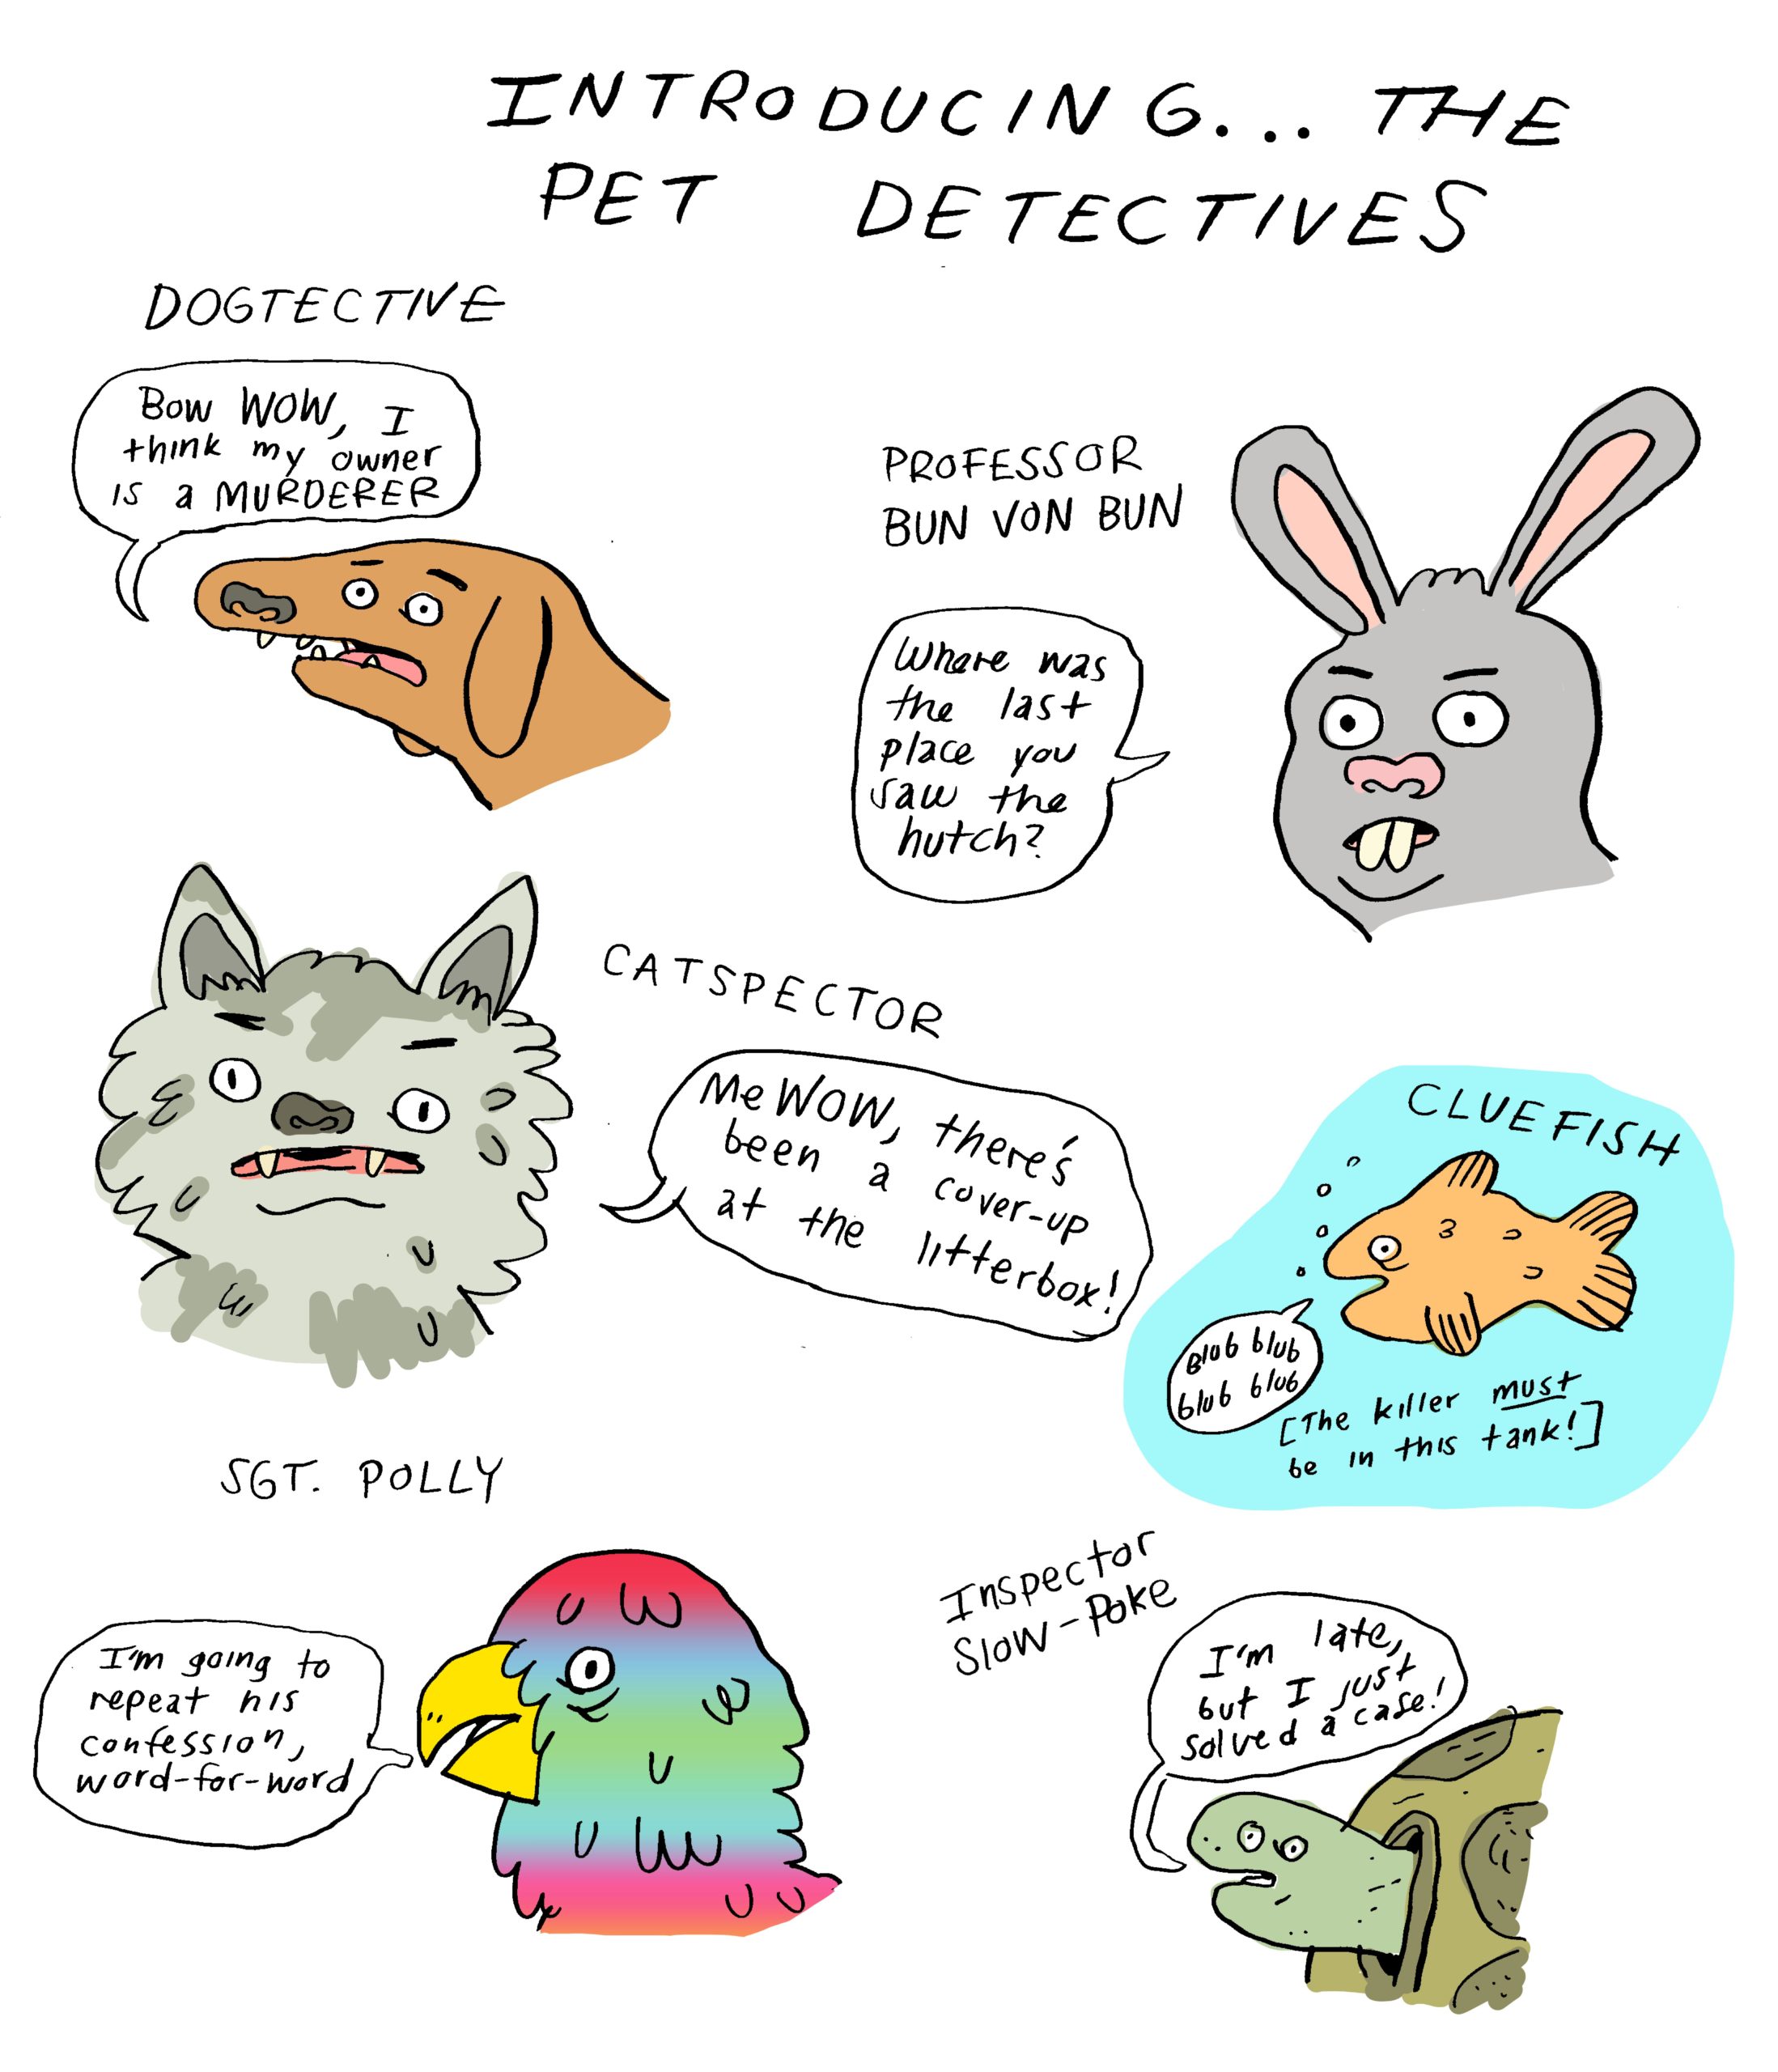 INTRODUCING... THE
PET DETECTIVES
DOGTECTIVE
Bow WOW, I
think my owner
is a MURDERER
PROFESSOR
BUN VON BUN
Where was
the last
place you
saw the
hutch?
CATSPECTOR
MeWOW, there's
been a cover-up
at the litterbox!
CLUEFISH
Blub blub
blub blub
[The killer must
be in this tank!]
SGT. POLLY
I'm going to
repeat his
confession,
word-for-word
Inspector
Slow-Poke
I'm late,
but I just
solved a case!